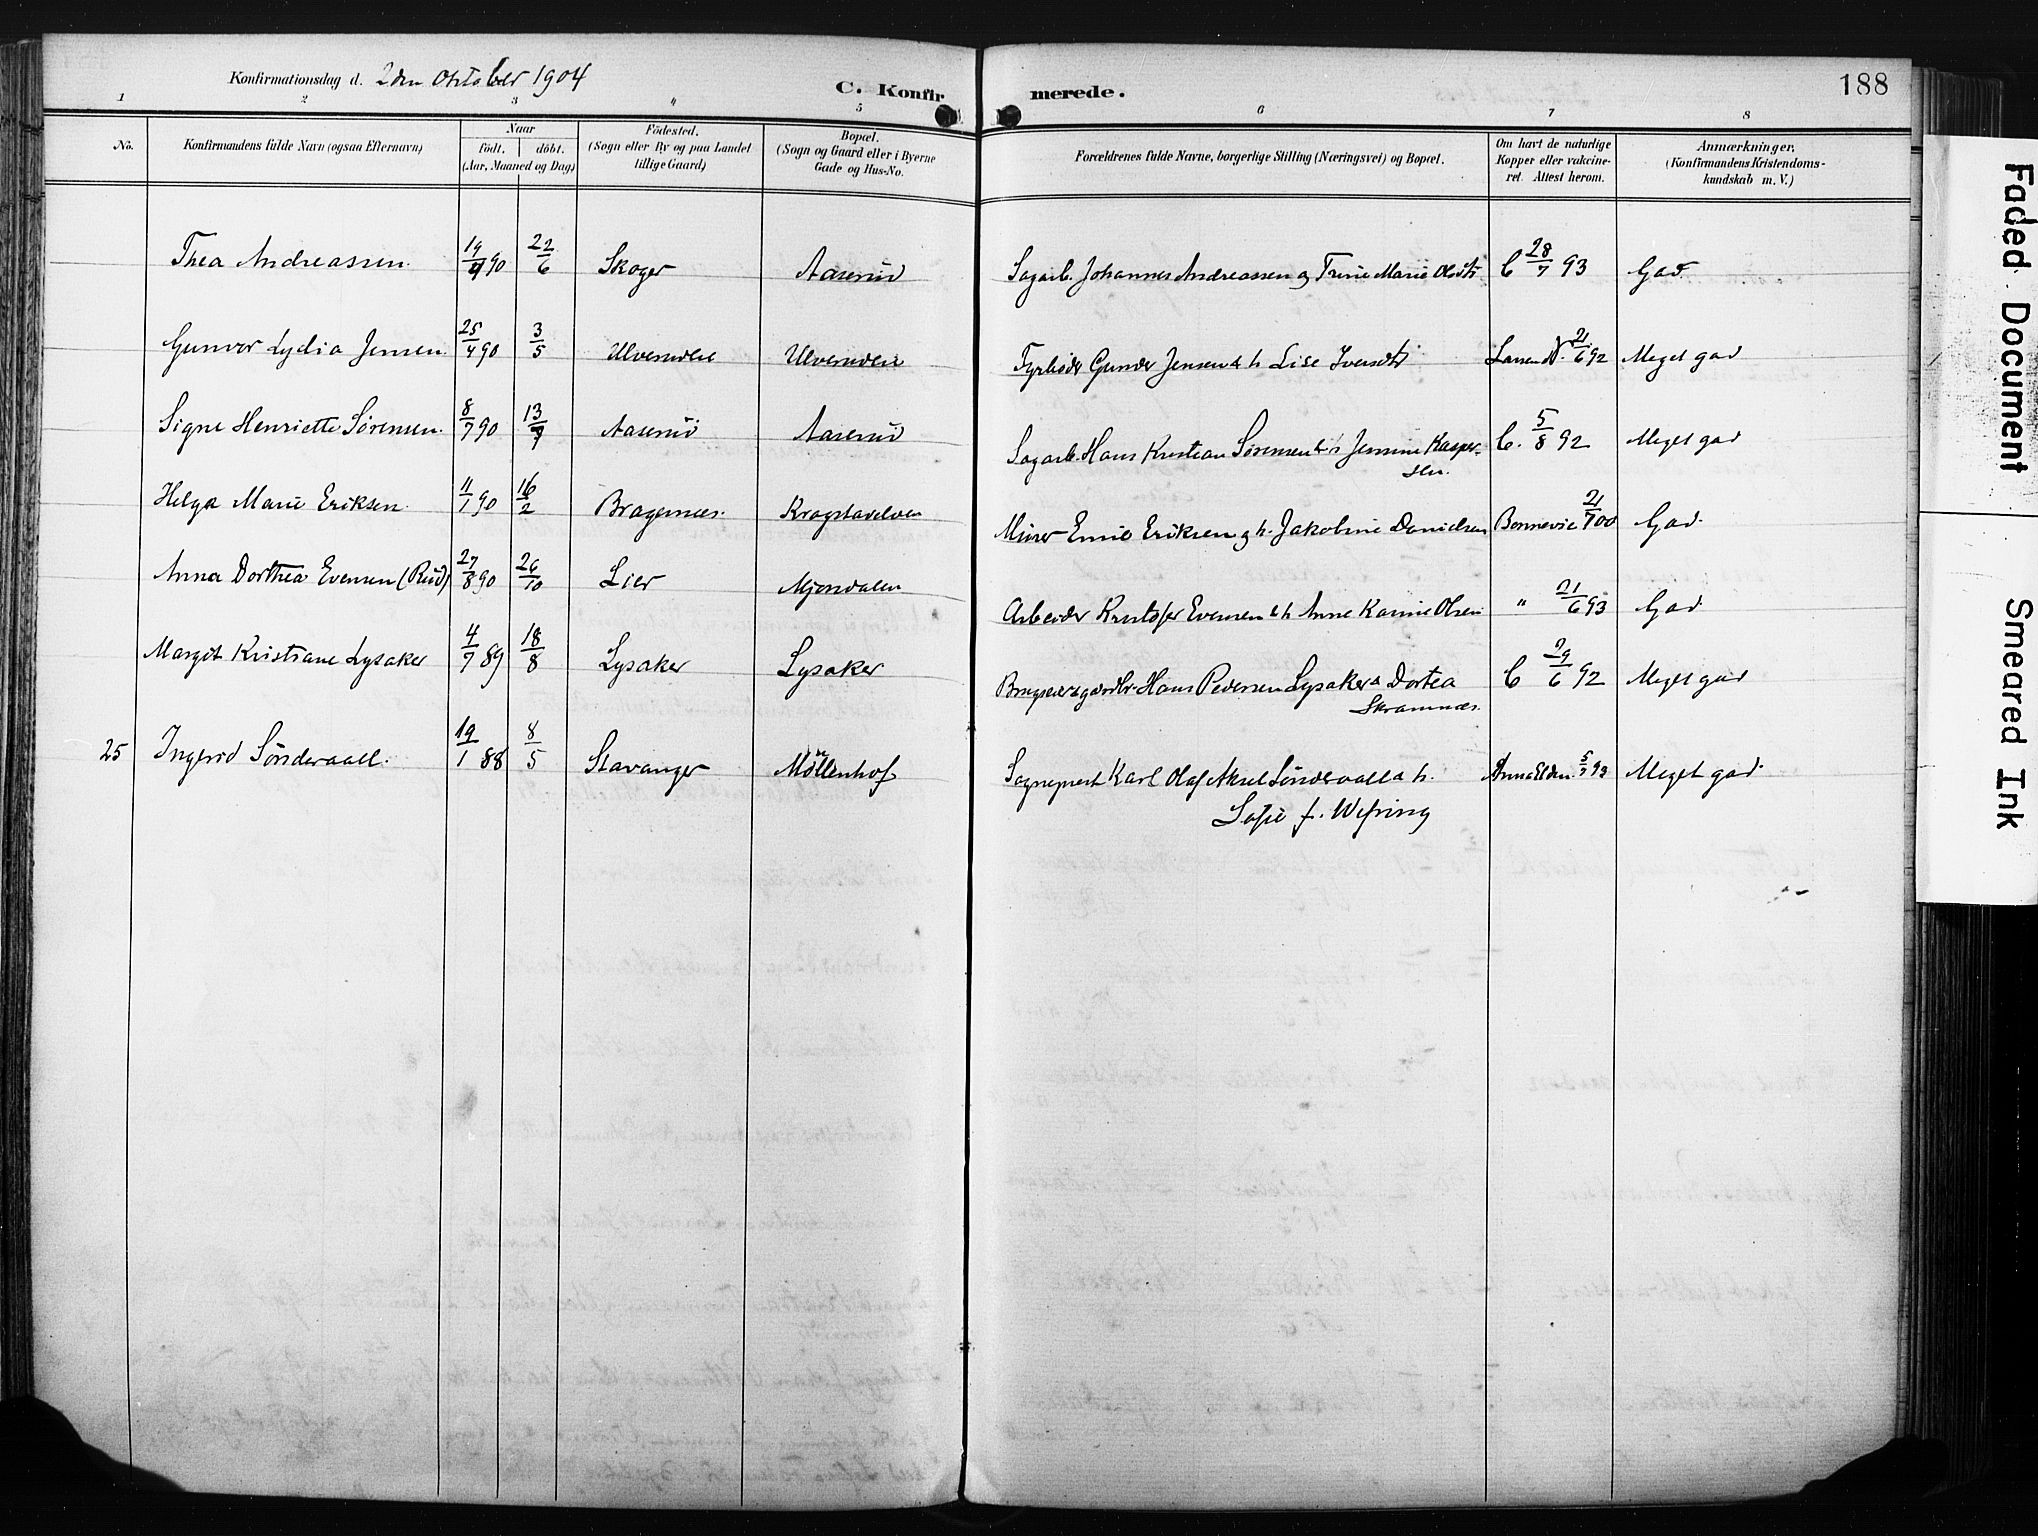 Konfirmationsdag d. 2den Oktober 1904
C. Konfirmerede.
188
1 2 3 " 5 6 7 8
No.
Konfirmandens fulde Navn (ogsaa Efternavn)
Naar
födt. döbt.
(Aar, Maaned og Dag)
Födested.
(Sogn eller By og paa Landet
tillige Gaard)
Bopæl.
(Sogn og Gaard eller i Byerne
Gade og Hus-No.
Forældrenes fulde Navne, borgerlige Stilling (Næringsvei) og Bopæl.
Om havt de naturlige
Kopper eller vakcine-
ret. Attest herom.
Anmærkninger.
(Konfirmandens Kristendoms-
kundskab m. V.)
Thea Andreassen 19/4 90 22/6 Skoger Aaserud Sagarb. Johannes Andreassen og Trine Marie C 28/7 93 God
Gunvor Lydia Jensen 25/4 90 3/5 Fyrbøder Gunder Jensen & h. Lise Larsen 21/6 92 Meget god
Signe Henriette Sörensen 8/7 90 13/ Aaserud Aaserud Sagarb. Hans Kristian Sørensen & h. Kasper-
sen. C. 5/8 92 Meget god
Helga Marie Eriksen 11/1 90 16/2 Bragernes Krogstadelven Murer Eriksen og h. Jakobine Danielsen Bonnevie 21/7 00 God
Anna Dorthea Evensen (Rud) 27/8 90 26/10 Lier Mjøndalen Arbeider Kristofer Evensen & h. Anne Karine Olsen " 21/6 93 God
Margit Kristiane Lysaker 4/7 89 18/8 Lysaker Lysaker Hans Pedersen Lysaker & Dortea
Skramnæs. C 29/6 92 Meget god
25 Ingerid Sönderaall 19/1 88 8/5 Stavanger Möllenhof Sogneprest Karl Olaf Aksel & h.
Sofie f. Wefring 93 Meget god
Faded Document
Smeared Ink